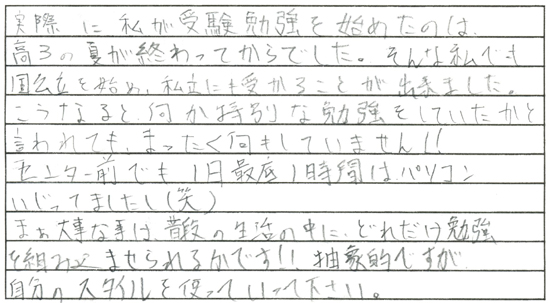 実際に私が受験勉強を始めたのは、
高3の夏が終わってからでした。そんな私でも
国公立を始め、私立にも受かることが出来ました。
こうなると、何か特別な勉強をしていたかと
言われても、まったく何もしていません!!
センター前でも1日最底1時間はパソコン
いじってましたし(笑)
まぁ大事な事は、普段の生活の中に、どれだけ勉強
を組みこませられるかです!!抽象的ですが
自分のスタイルを使っていって下さい。